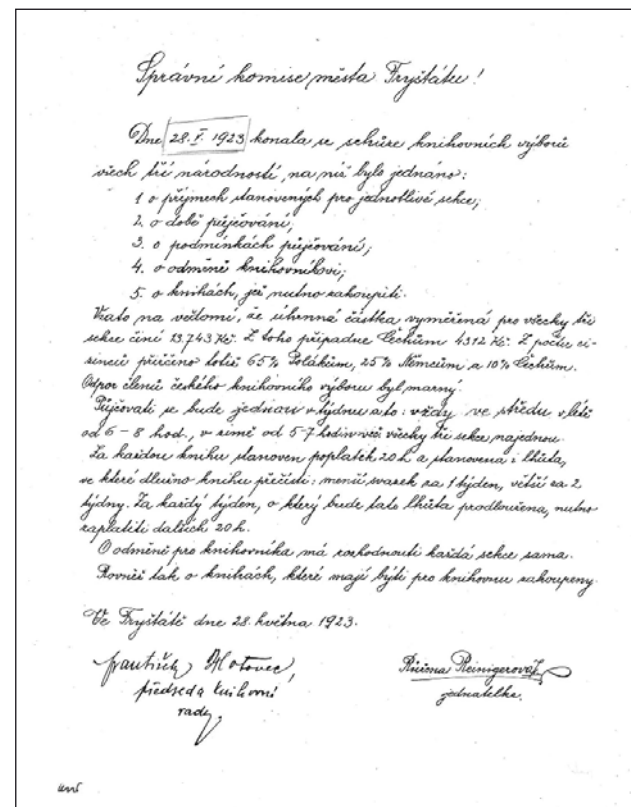 Správní komise města Fryštátu!
Dne 28. V. 1923 konala se schůze knihovních výborů
všech tří národností, na níž bylo jednáno:
1 o příjmech stanovených pro jednotlivé sekce;
2. o době půjčování;
3. o podmínkách půjčování;
4. o odměně knihovníkovi;
5. o knihách, jež nutno zakoupiti.
Vzato na vědomí, že úhrnná částka vyměřená pro všecky tři
sekce činí 13.743 Kč. Z toho připadne Čechům 4312 Kč. Z počtu ci-
zinců přičteno totiž 65% Polákům, 25% Němcům a 10% Čechům.
Odpor členů českého knihovního výboru byl marný.
Půjčovati se bude jednou v týdnu a to: vždy ve středu v létě
od 6 - 8 hod., v zimě od 5-7 hodin več všecky tři sekce najednou.
Za každou knihu stanoven poplatek 20 h a stanovena i lhůta,
ve které dlužno knihu přečísti: menší svazek za 1 týden, větší za 2
týdny. Za každý týden, o který bude tato lhůta prodloužena, nutno
zaplatiti dalších 20 h.
O odměně pro knihovníka má rozhodnouti každá sekce sama.
Rovněž tak o knihách, které mají býti pro knihovnu zakoupeny.
Ve Fryštátě dne 28. května 1923.
František Hotovec,
předseda knihovní
rady.
Růžena Reinigerová
jednatelka.